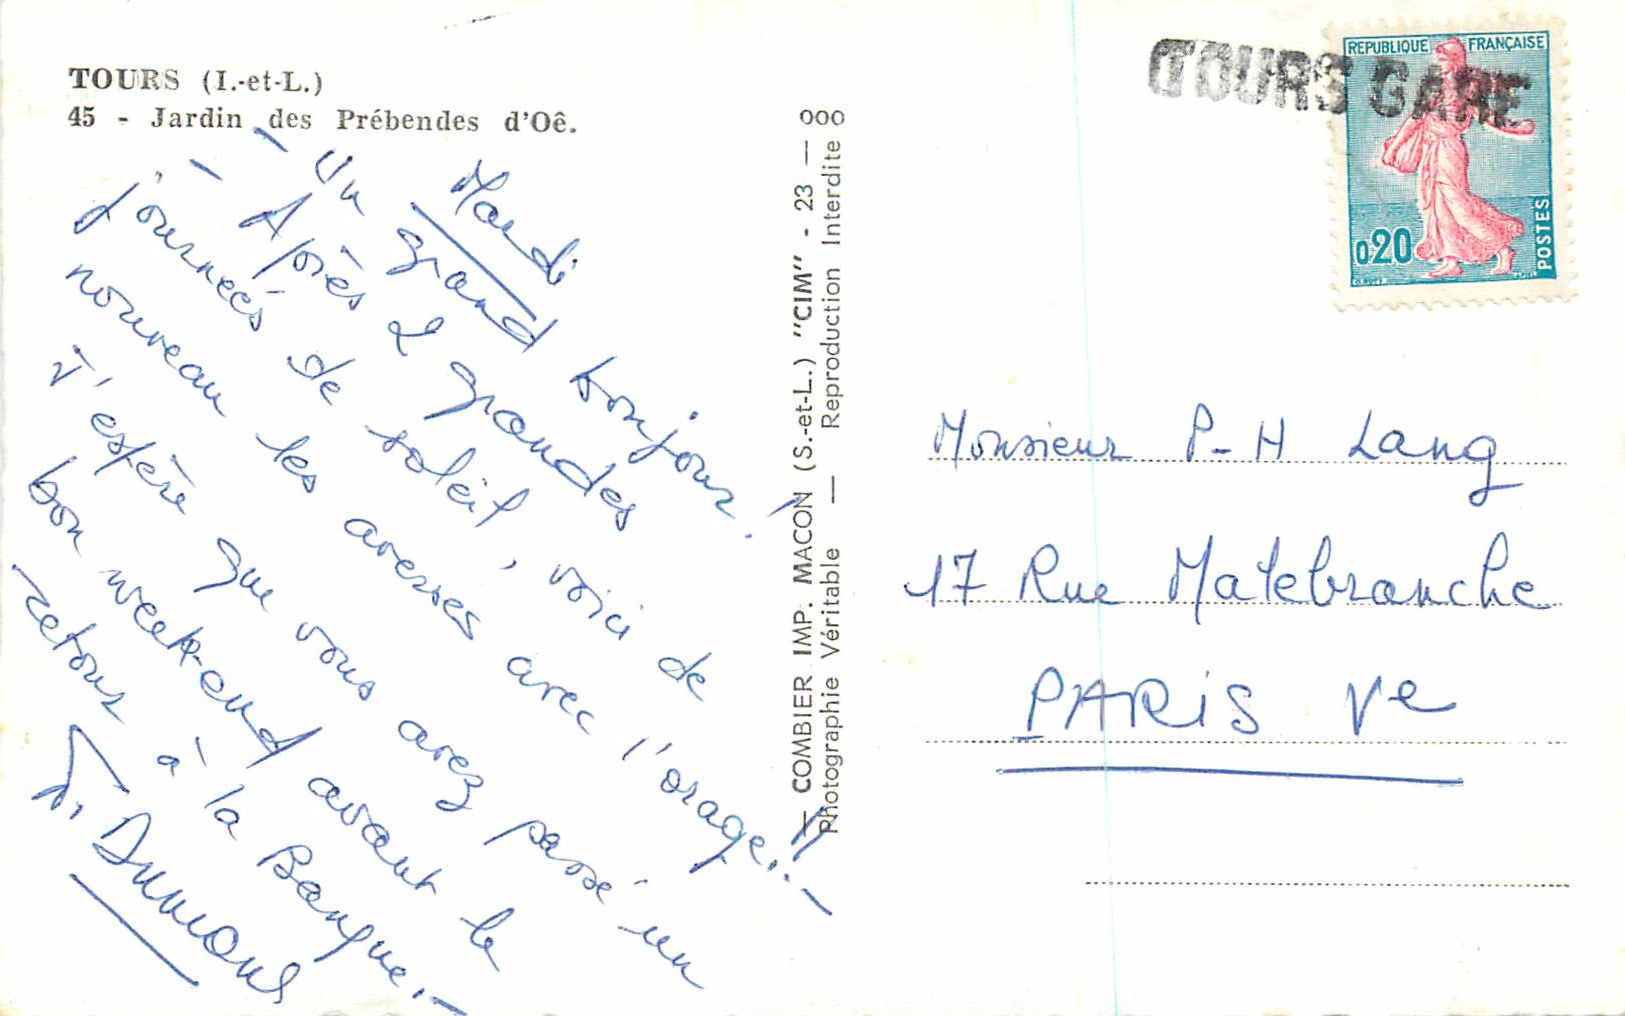 TOURS (I.-et-L.)
45 - Jardin des Prébendes d'Oê.
Mardi
- Un grand bonjour!
- Après 2 grandes
journeés de soleil, voici de
nouveau les averses avec l'orage..!! -
J'espère que vous avez passé un
bon week-end avant le
retour à la Banque. -
000
— COMBIER IMP. MACON (S.-et-L.) "CIM" - 23 —
Photographie Véritable — Reproduction Interdite
TOURS GARE
REPUBLIQUE FRANÇAISE
0,20
POSTES
Monsieur P-H Lang
17 Rue Malebranche
PARIS Ve